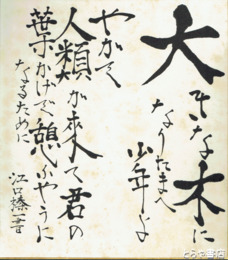 大きな木に
なりたまへ
少年よ
やがて
人類が来て君の
葉かげで憩ふやうに
なるために
江口榛一書
とらや書店